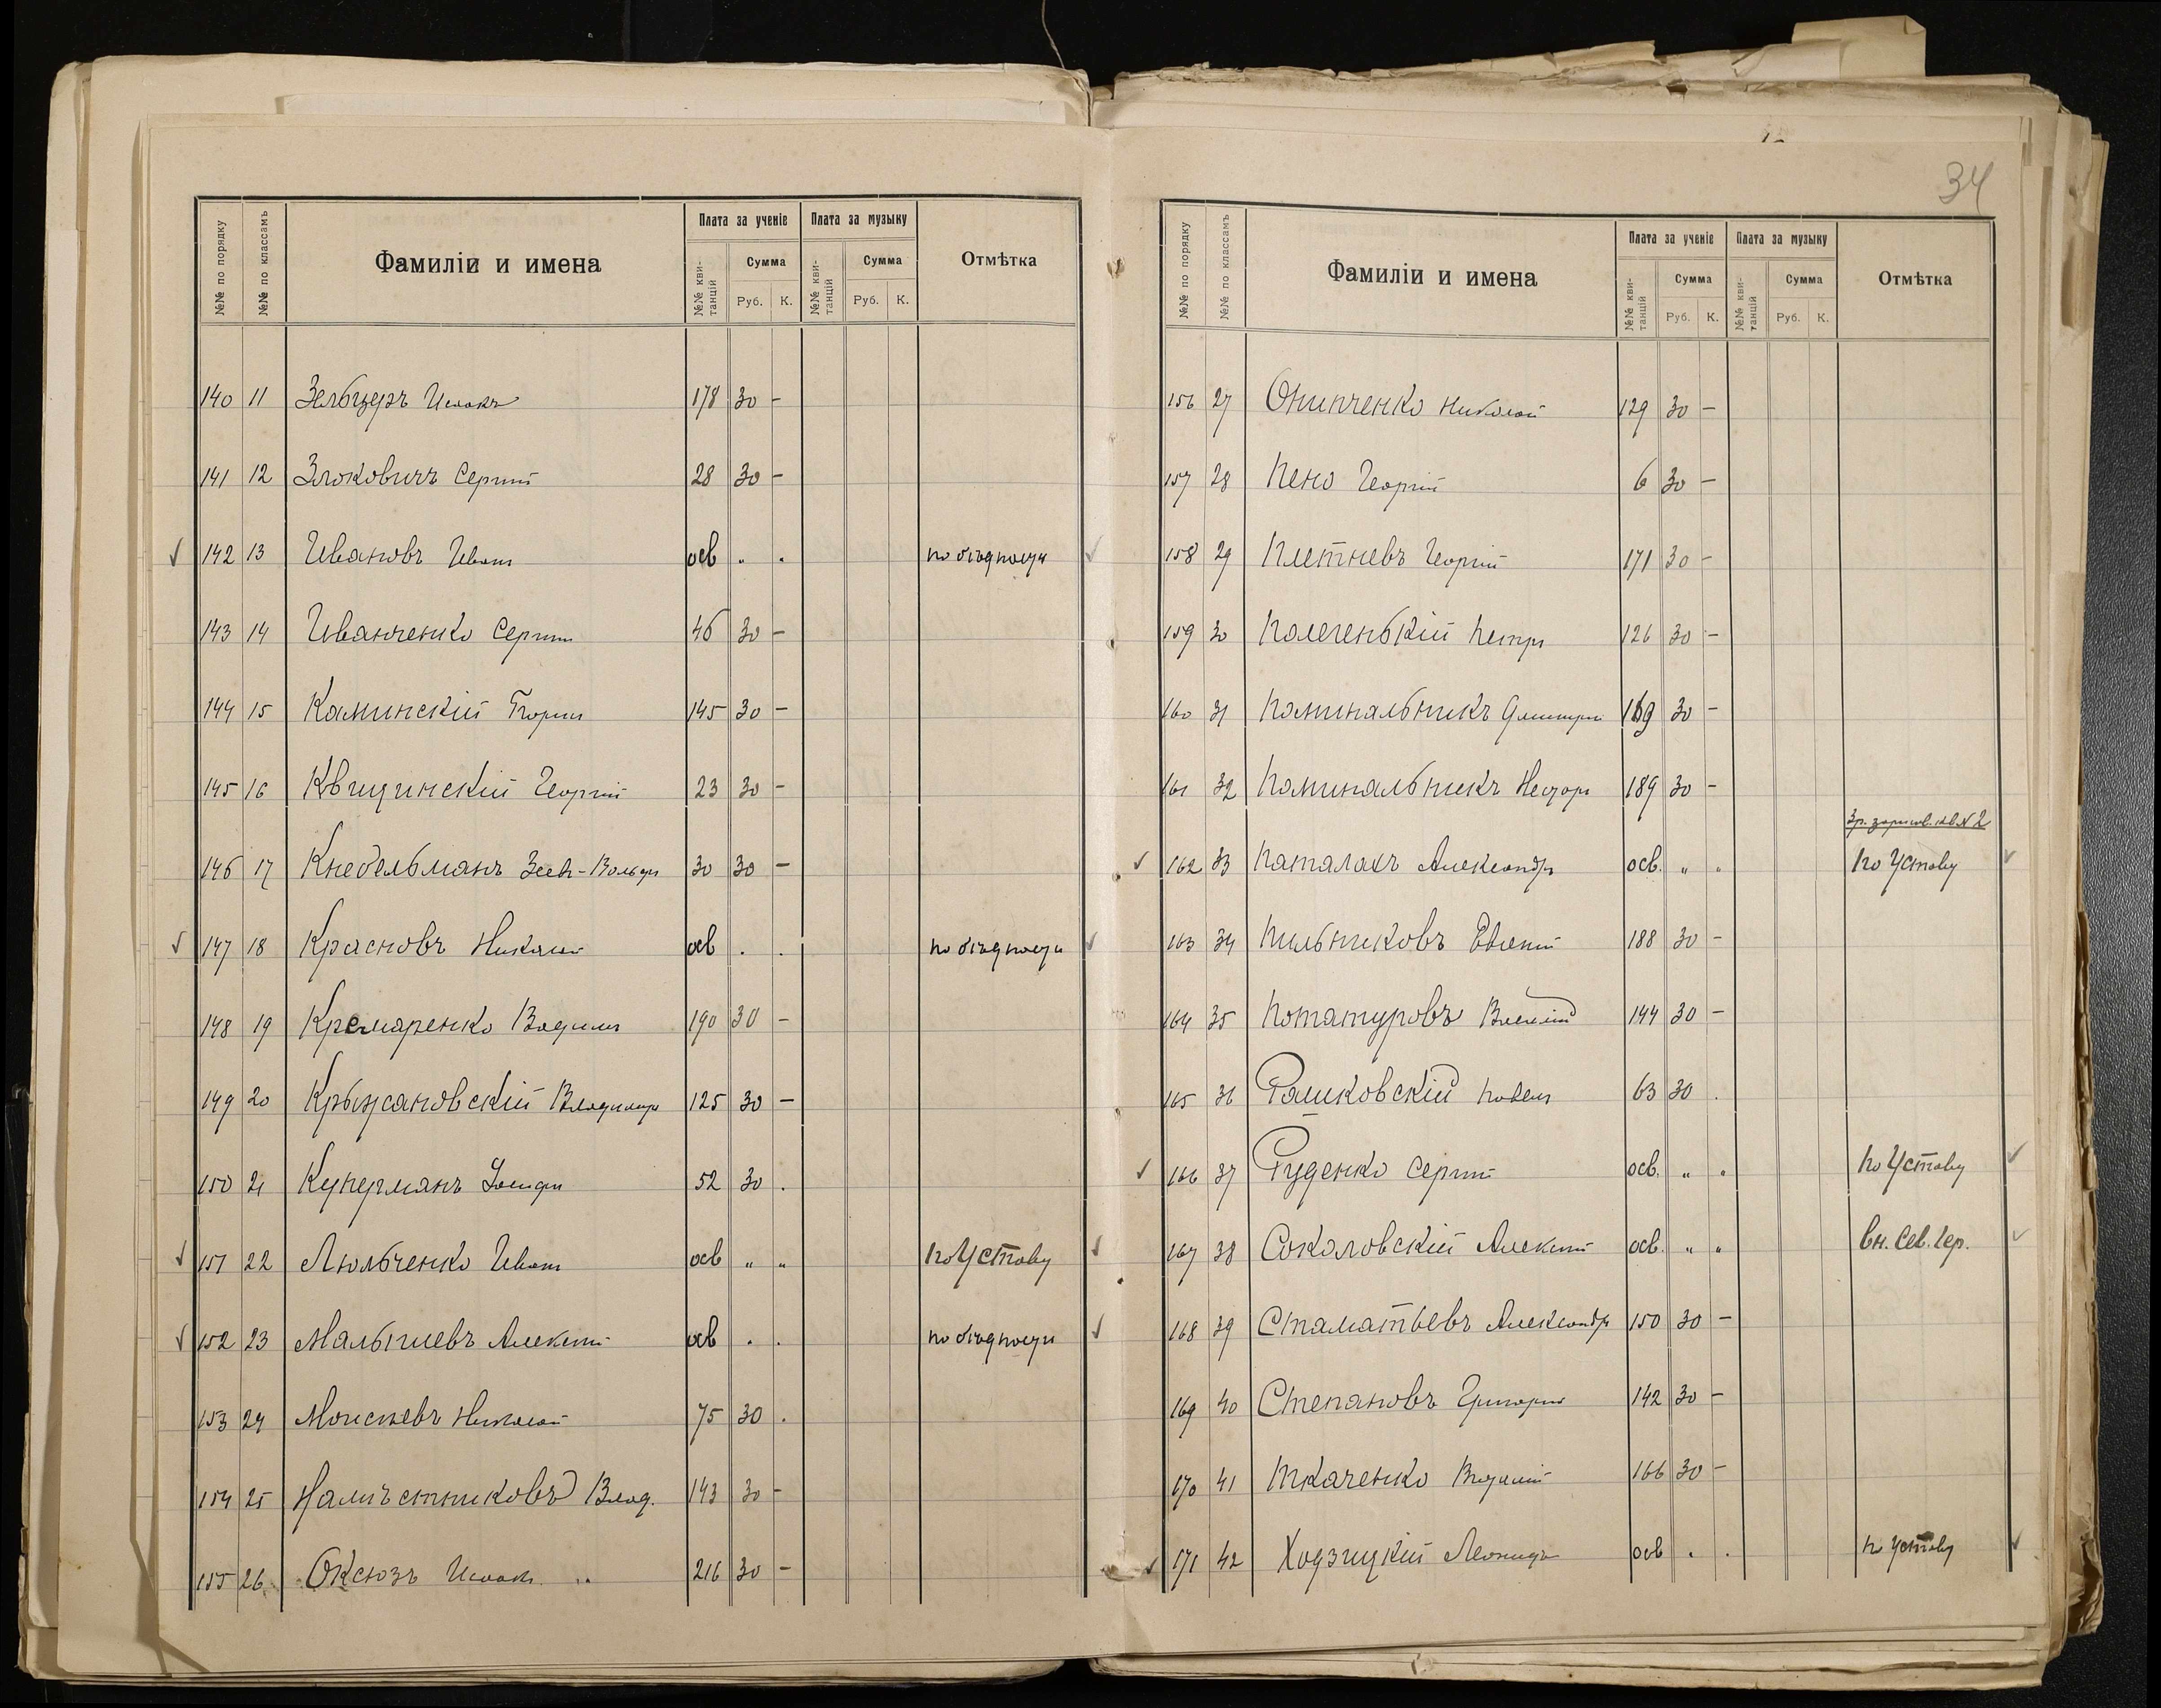 34
№№ по порядку №№ по классамъ Фамиліи и имена Плата за ученіе Плата за музыку Отмѣтка
№№ кви-танцій Сумма №№ кви-танцій Сумма
Руб. К. Руб. К.
140 11 Зельцеръ Исаакъ 178 30 -
141 12 Злоковичъ Сергѣй 28 30 -
142 13 Ивановъ Иванъ осв " " по бѣдности
143 14 Иванченко Сергѣй 46 30 -
144 15 Каминскій Георгій 145 30 -
145 16 Квицинскій Георгій 23 30 -
146 17 Кнебельманъ Зеевъ-Вольфъ 30 30 -
147 18 Красновъ Николай осв . . по бѣдности
148 19 Кремаренко Вадимъ 190 30 -
149 20 Крыжановскій Владимиръ 125 30 -
150 21 Куперманъ Іосифъ 52 30 .
151 22 Люльченко Иванъ осв " " по Уставу
152 23 Малыгиевъ Алексѣй осв . . по бѣдности
153 24 Моисѣевъ Николай 75 30 .
154 25 Намѣстниковъ Влад. 143 30 -
155 26 Оксюзъ Исаакъ 216 30 -
№№ по порядку №№ по классамъ Фамиліи и имена Плата за ученіе Плата за музыку Отмѣтка
№№ кви-танцій Сумма №№ кви-танцій Сумма
Руб. К. Руб. К.
156 27 Онипченко Николай 129 30 -
157 28 Пено Георгій 6 30 -
158 29 Плетневъ Георгій 171 30 -
159 30 Полегенькій Петръ 126 30 -
160 31 Поминальникъ Дмитрій 169 30 -
161 32 Поминальникъ Несторъ 189 30 -
№ 2
162 33 Паталахъ Александръ осв. " " по Уставу
163 34 Пильниковъ Евгеній 188 30 -
164 35 Потатуровъ Василій 144 30 -
165 36 Рашковскій Павелъ 63 30 .
166 37 Руденко Сергѣй осв. " " по Уставу
167 38 Соколовскій Алексѣй осв. " " вн. Сев. Гер.
168 39 Стаматьевъ Александръ 150 30 -
169 40 Степановъ Григорій 142 30 -
170 41 Ткаченко 166 30 -
171 42 Ходзицкій Леонидъ осв . . по уставу